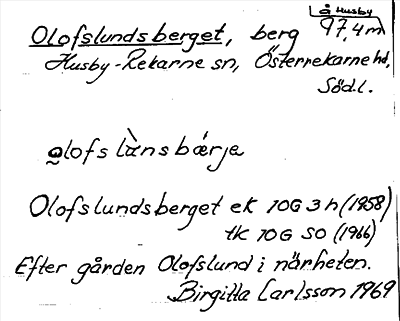 å Husby
Olofslundsberget, berg 97,4 m
Husby-Rekarne sn, Österrekarne hd,
Södl.
olofs lànsbǽrja
Olofslundsberget ek 10G 3h (1958)
tk 10G SO (1966)
Efter gården Olofslund i närheten.
Birgitta Carlsson 1969